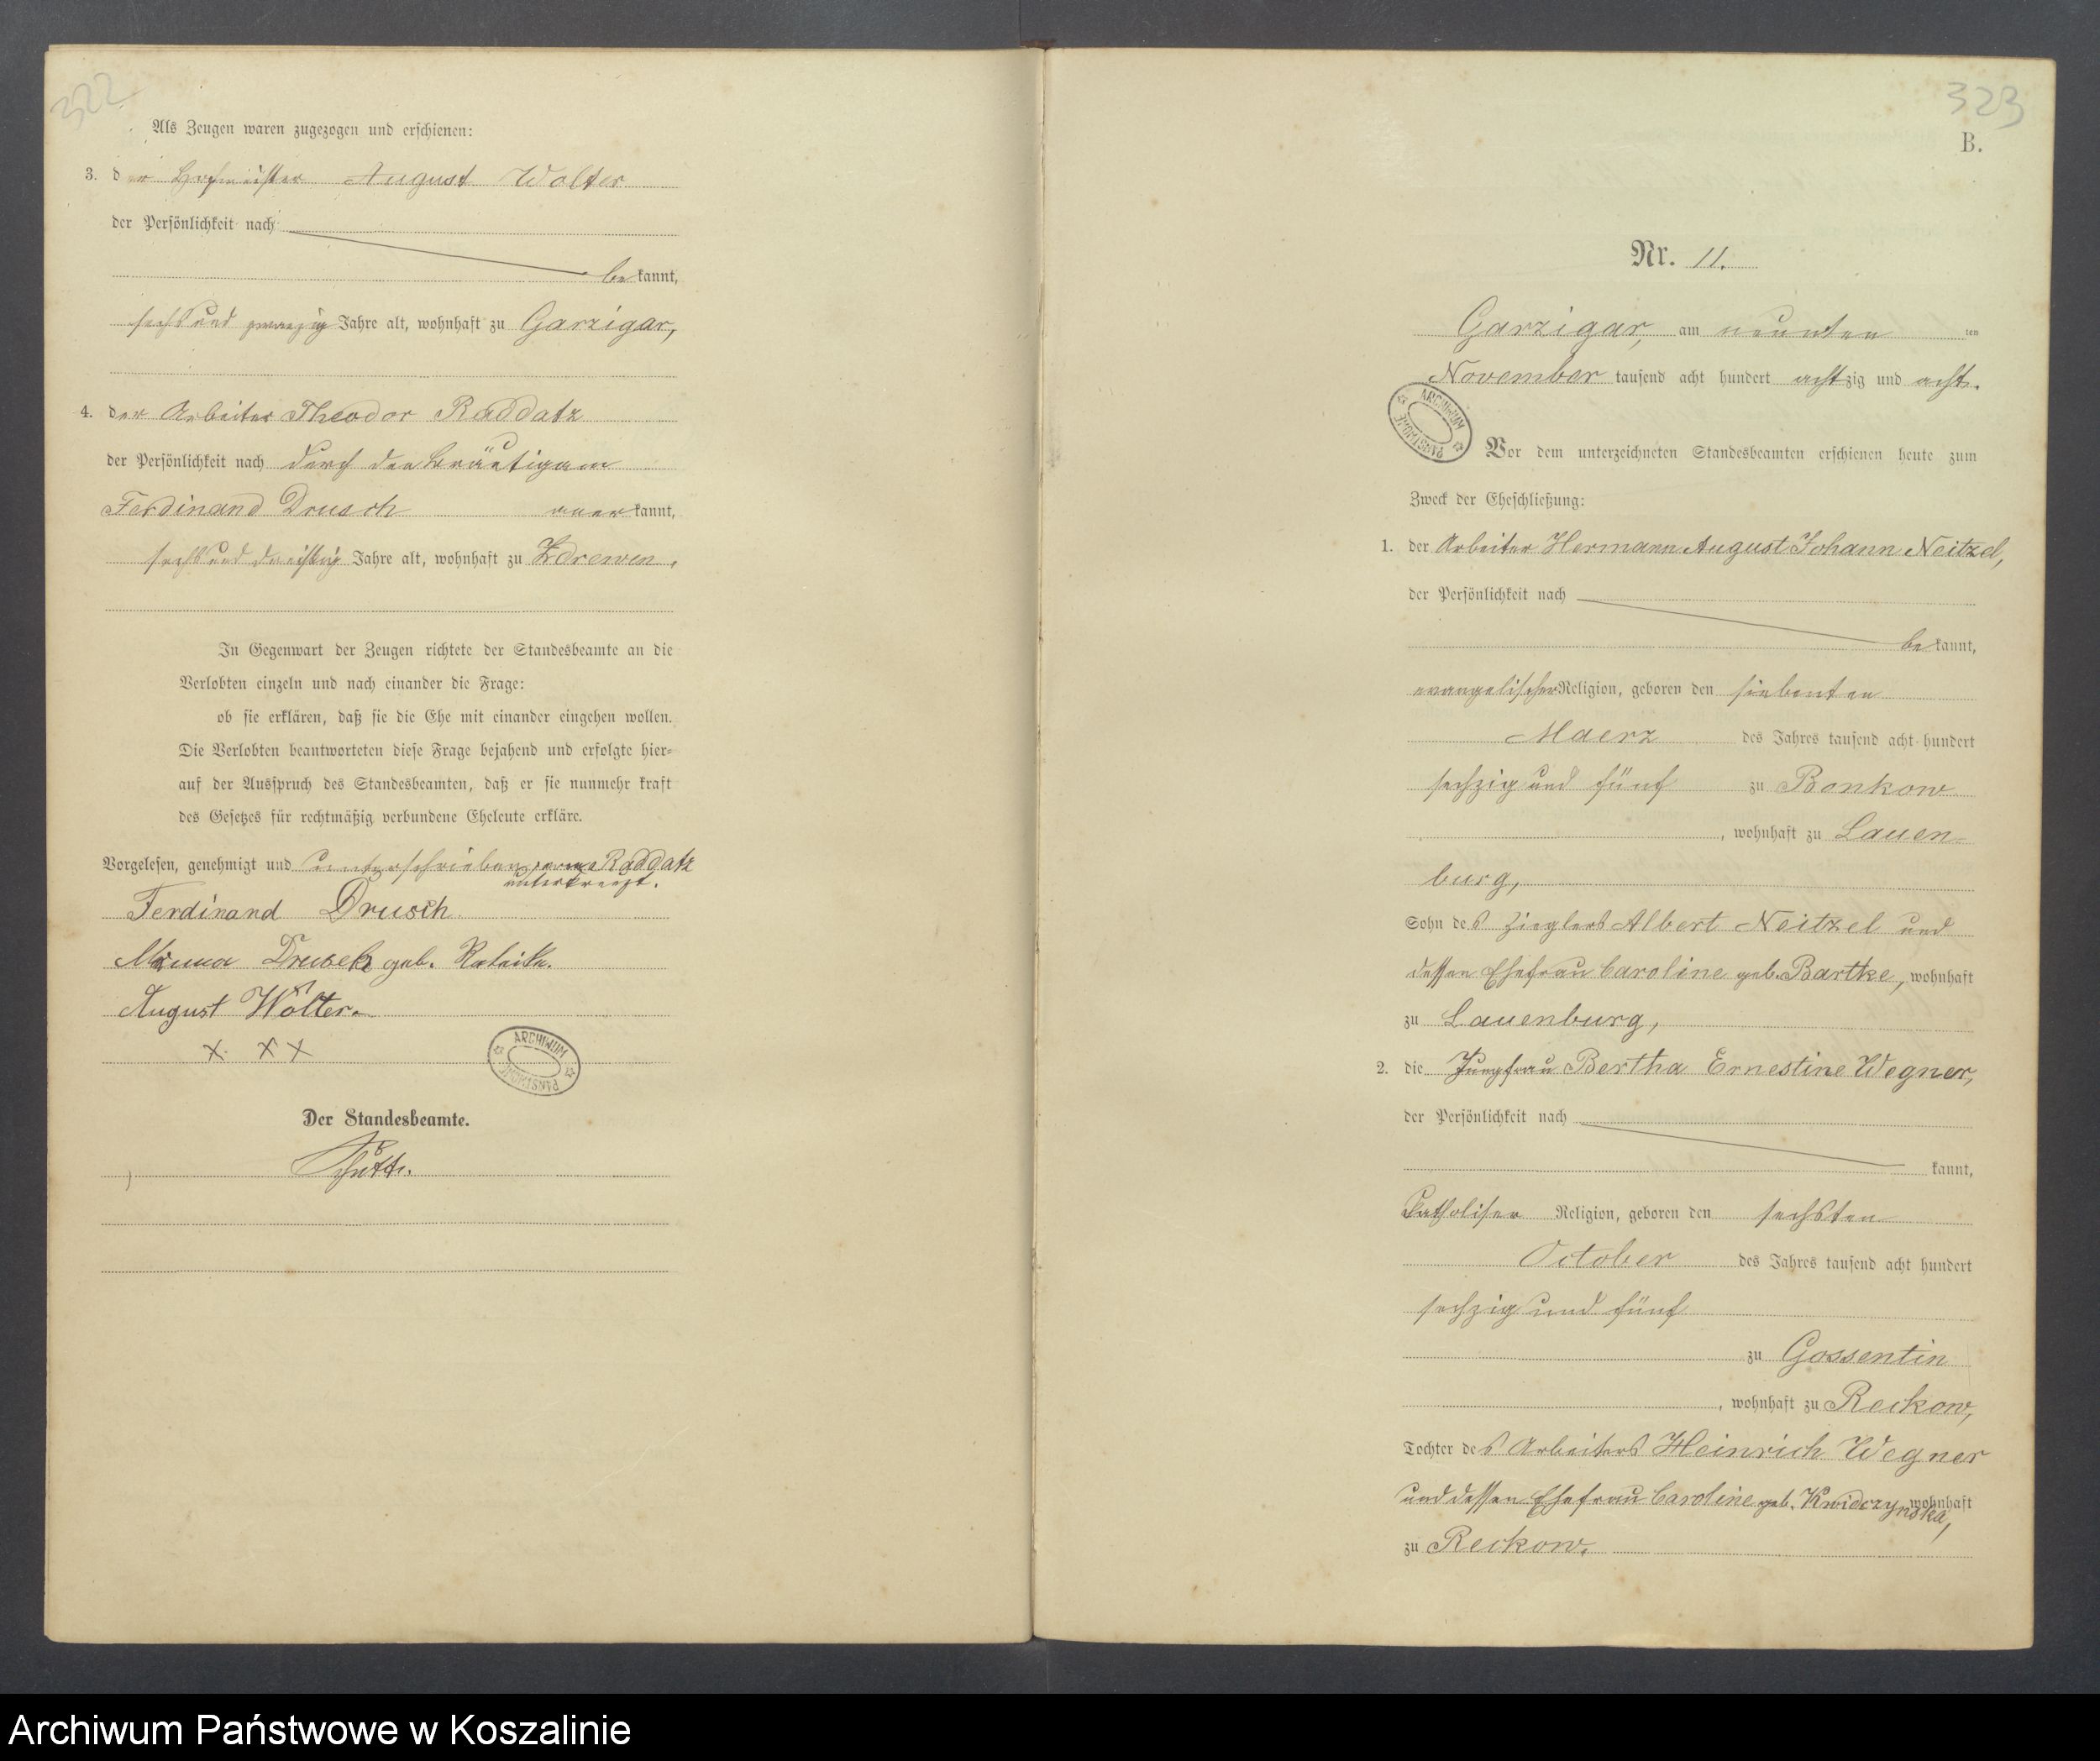 322
Als Zeugen waren zugezogen und erschienen:
3. der Hofmeister August Wolter
der Persönlichkeit nach
be kannt,
sechs und zwanzig Jahre alt, wohnhaft zu Garzigar,
4. der Arbeiter Theodor Raddatz
der Persönlichkeit nach durch den Bräutigam
Ferdinand Drusch aner kannt,
sechs und dreißig Jahre alt, wohnhaft zu Zdrewen.
In Gegenwart der Zeugen richtete der Standesbeamte an die
Verlobten einzeln und nach einander die Frage:
ob sie erklären, daß sie die Ehe mit einander eingehen wollen.
Die Verlobten beantworteten diese Frage bejahend und erfolgte hier-
auf der Ausspruch des Standesbeamten, daß er sie nunmehr kraft
des Gesetzes für rechtmäßig verbundene Eheleute erkläre.
Vorgelesen, genehmigt und unterschrieben, Raddatz
unterkreuzt.
Ferdinand Drusch
Drusch geb.
August Wolter
x x x
ARCHIWUM PAŃSTWOWE
Der Standesbeamte.
323
B.
Nr. 11.
Garzigar, am neunten ten
November tausend acht hundert achtzig und acht.
ARCHIWUM PAŃSTWOWE
Vor dem unterzeichneten Standesbeamten erschienen heute zum
Zweck der Eheschließung:
1. der Arbeiter Hermann August Johann Neitzel,
der Persönlichkeit nach
be kannt,
evangelischer Religion, geboren den siebenten
Maerz des Jahres tausend acht hundert
sechzig und fünf zu Bonkow
, wohnhaft zu Lauen-
burg,
Sohn des Zieglers Albert Neitzel und
dessen Ehefrau Caroline geb. Bartke, wohnhaft
zu Lauenburg,
2. die Jungfrau Bertha Ernestine Wegner,
der Persönlichkeit nach
kannt,
Katholischer Religion, geboren den sechsten
October des Jahres tausend acht hundert
sechzig und fünf
zu Gossentin
, wohnhaft zu Reckow,
Tochter des Arbeiters Heinrich Wegner
und dessen Ehefrau Caroline geb. Kwidczynska, wohnhaft
zu Reckow.
Archiwum Państwowe w Koszalinie